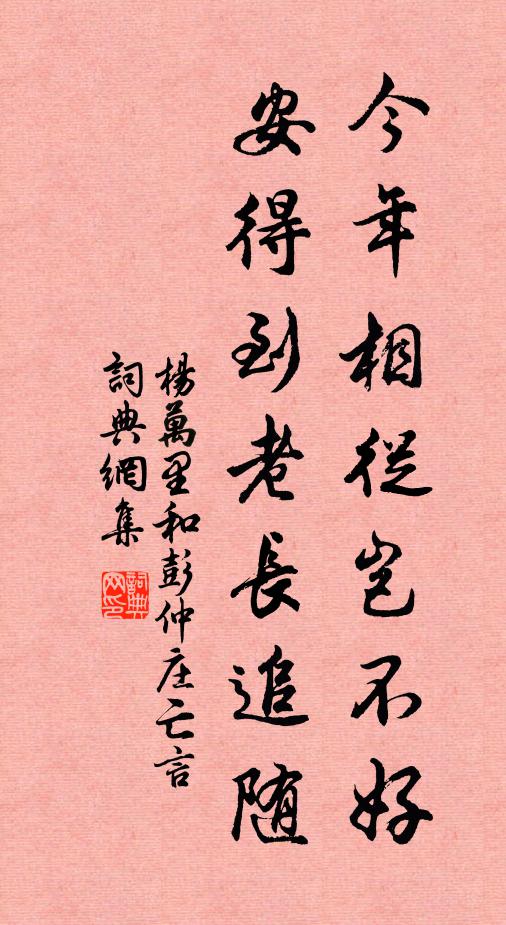 今年相從岂不好
安得到老長追随
楊萬里和彭仲庄七言
詞典網集
詞典网印